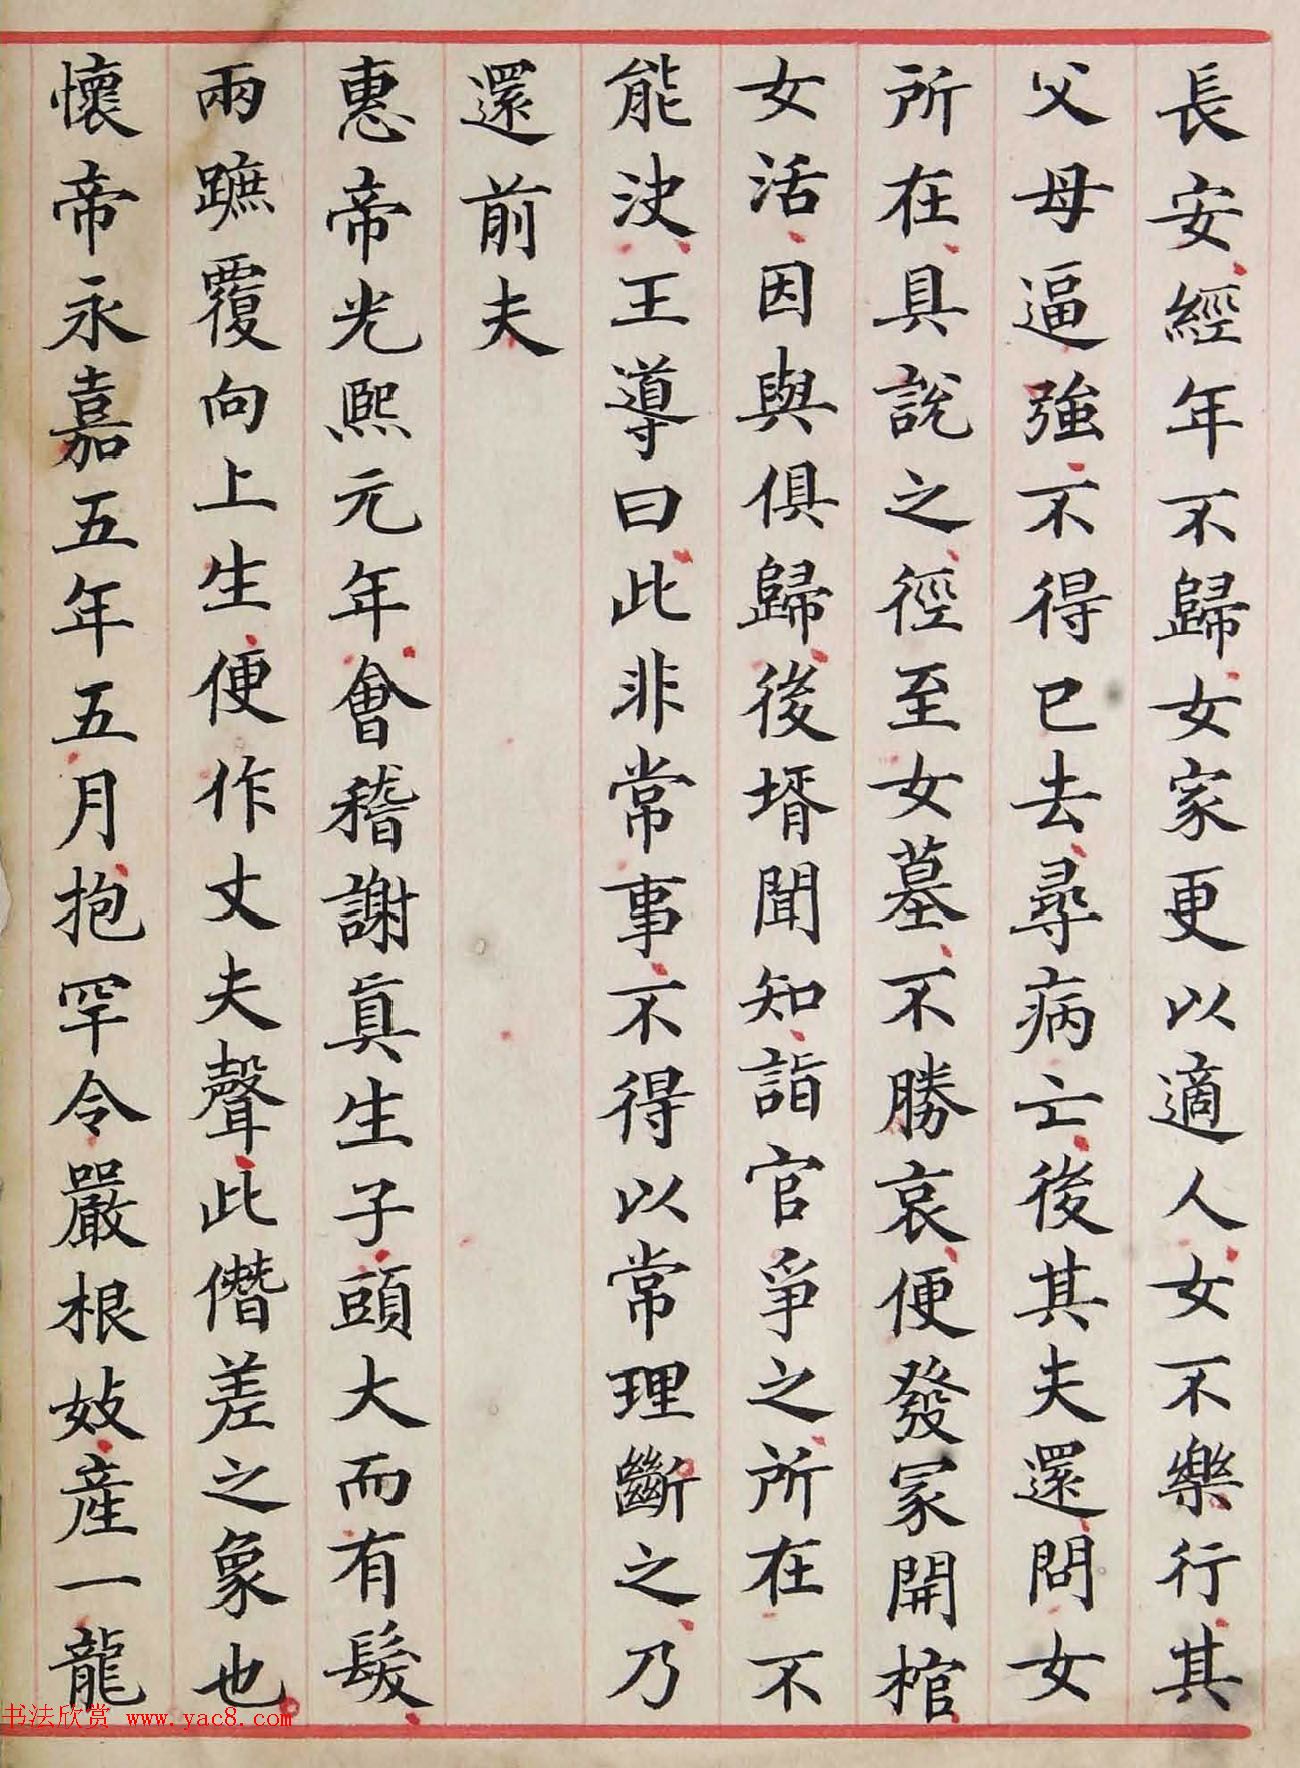 長安經年不歸女家更以適人女不樂行其
父母逼強不得已去尋病亡後其夫還問女
所在具說之徑至女墓不勝哀便發冡開棺
女活因與俱歸後壻聞知詣官爭之所在不
能決王導曰此非常事不得以常理斷之乃
還前夫
惠帝光熙元年會稽謝眞生子頭大而有髮
兩蹠覆向上生便作丈夫聲此僭差之象也
懷帝永嘉五年五月抱罕令嚴根妓產一龍
书法欣赏 www.yac8.com